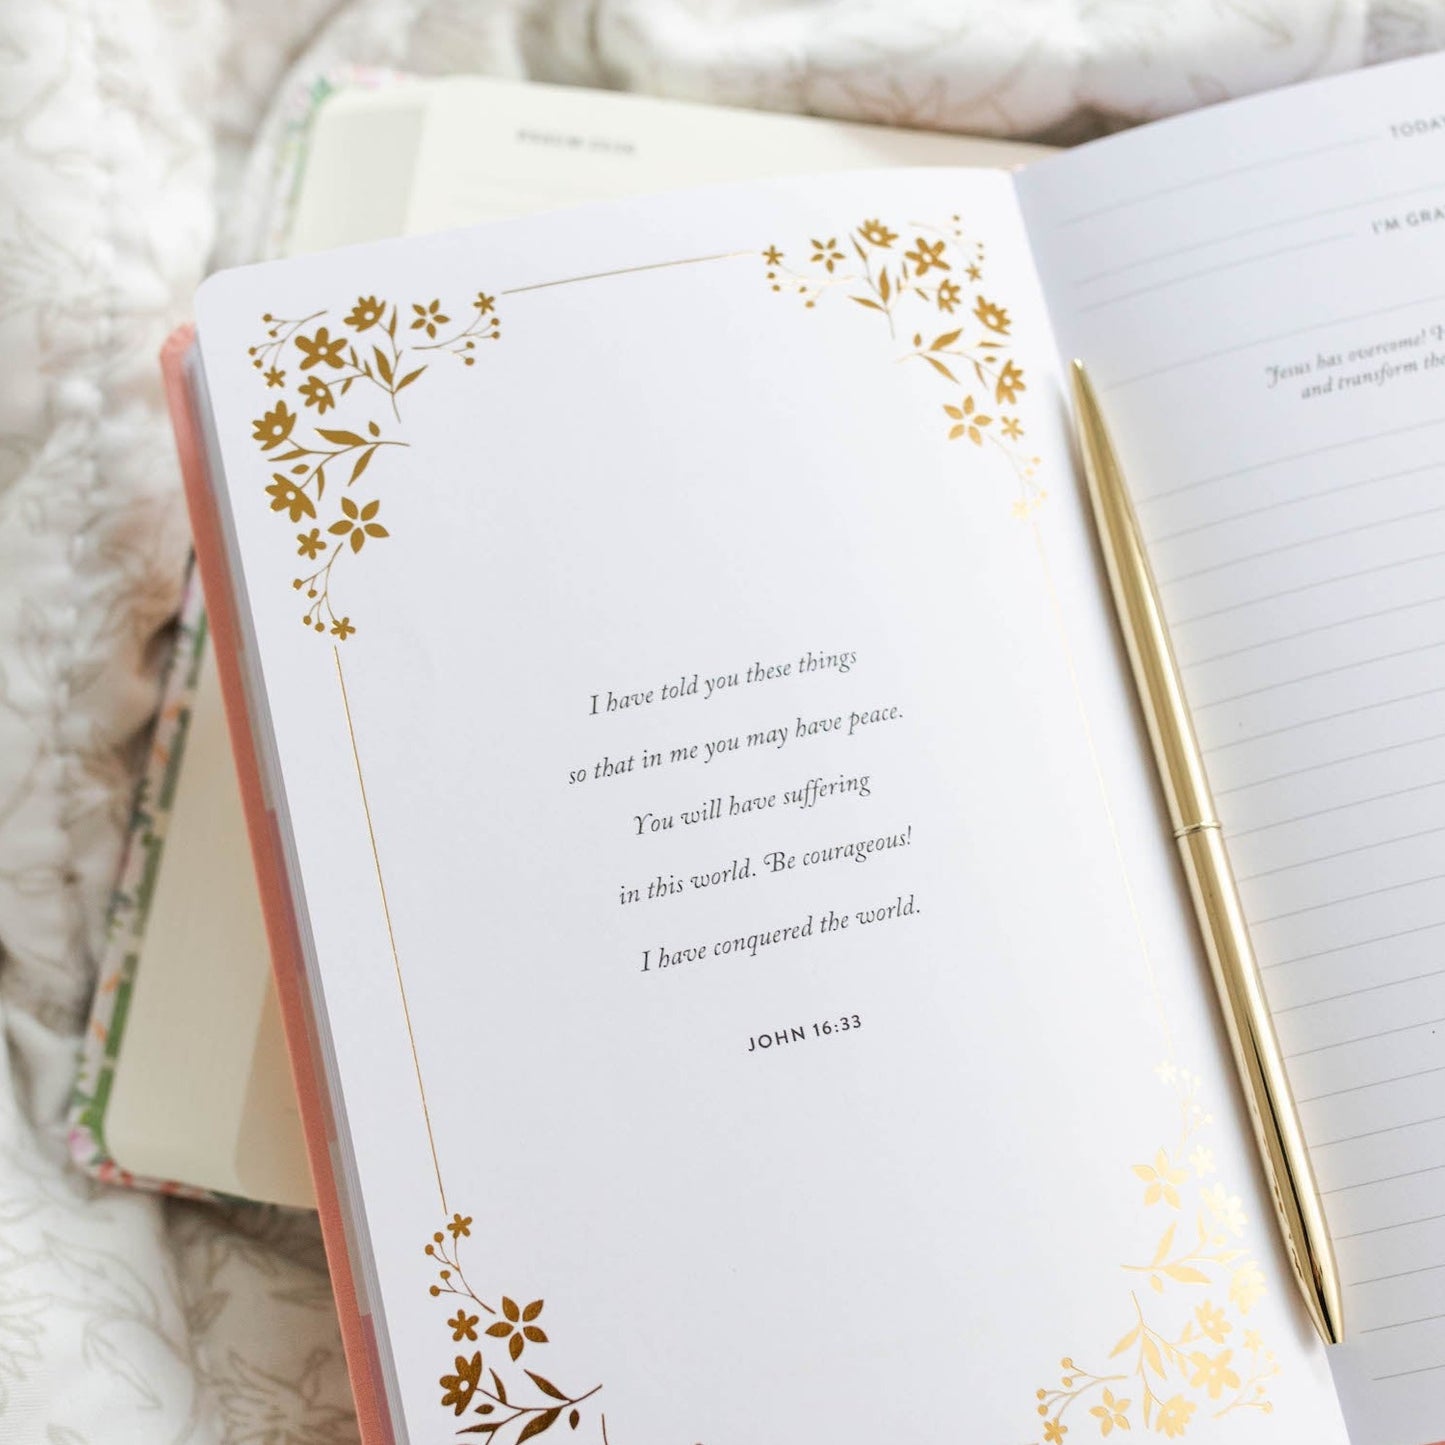 I have told you these things
so that in me you may have peace.
You will have suffering
in this world. Be courageous!
I have conquered the world.
JOHN 16:33
Jesus has overcome!
and transform